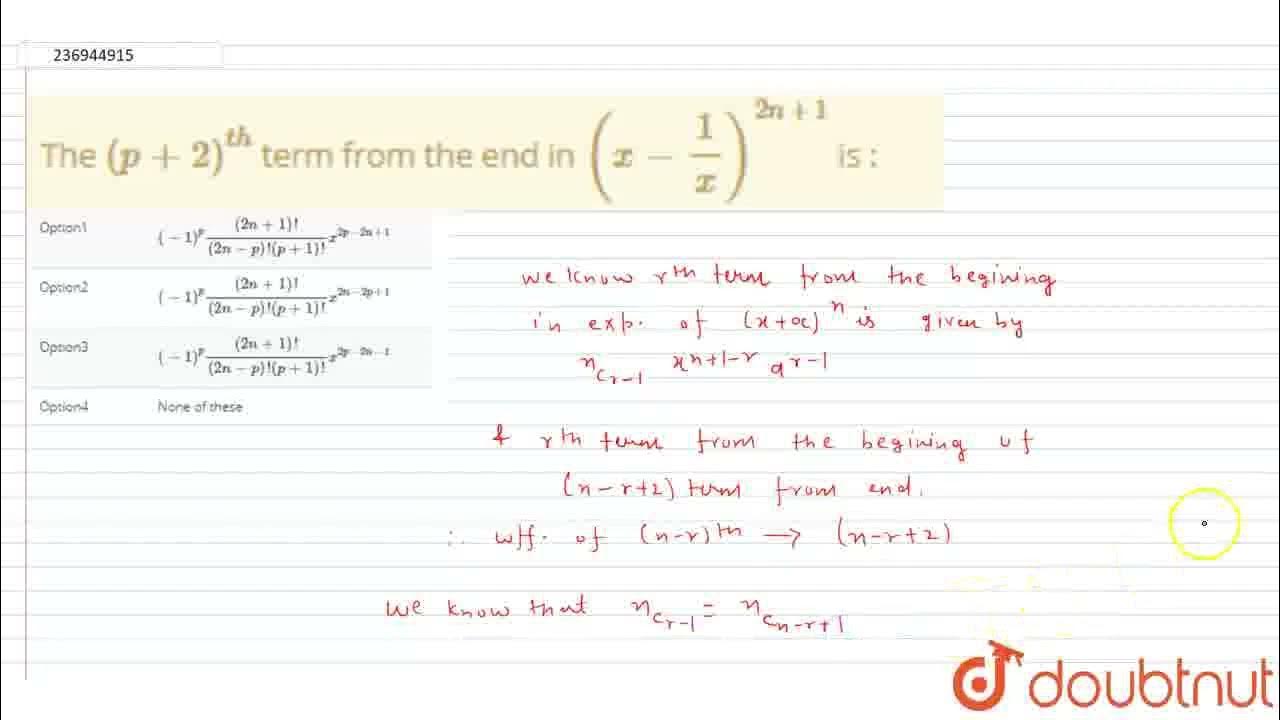 236944915
The (p + 2)^{th} term from the end in (x - \frac{1}{x})^{2n+1} is :
Option1 (-1)^p \frac{(2n+1)!}{(2n-p)!(p+1)!} x^{2p-2n+1}
Option2 (-1)^p \frac{(2n+1)!}{(2n-p)!(p+1)!} x^{2n-2p+1}
Option3 (-1)^p \frac{(2n+1)!}{(2n-p)!(p+1)!} x^{2p-2n-1}
Option4 None of these
we know rth term from the begining
in exp. of (x+a)^n is given by
^nC_{r-1} x^{n+1-r} a^{r-1}
& rth term from the begining of
(n-r+2) term from end.
∴ coff. of (n-r)th → (n-r+2)
we know that ^nC_{r-1} = ^nC_{n-r+1}
doubtnut